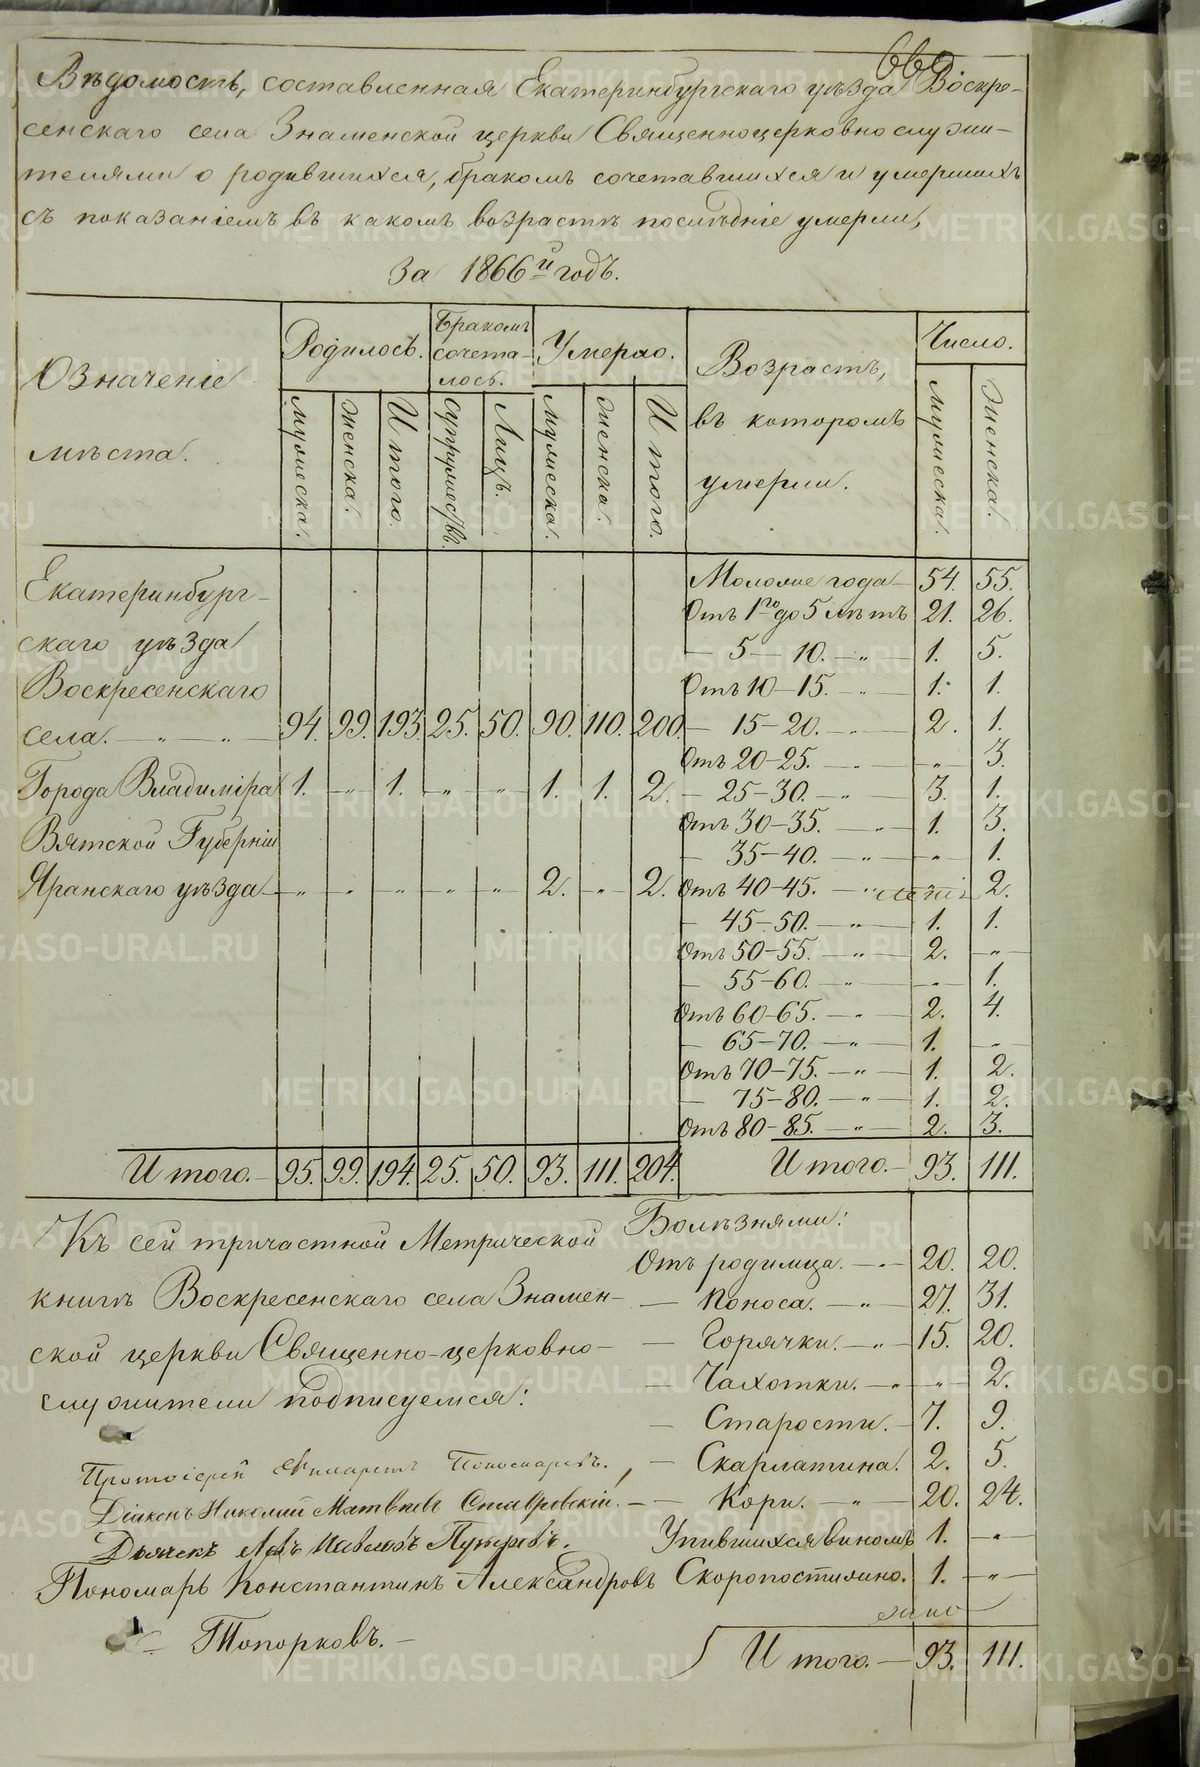 666
Вѣдомость, составленная Екатеринбургскаго уѣзда Воскре-
сенскаго села Знаменской церкви Священноцерковнослужи-
телями о родившихся, бракомъ сочетавшихся и умершихъ
съ показаніемъ въ какомъ возрастѣ послѣдніе умерли,
За 1866й годъ.
Означеніе мѣста.
Родилось. Бракомъ сочета-лось. Умерло. Возрастъ, въ которомъ умерли. Число.
мужеска. женска. Итого. супружествъ. Лицъ. мужеска. женска. Итого. мужеска. женска.
Екатеринбург-
скаго уѣзда
Воскресенскаго
села. — „ — „ — 94. 99. 193. 25. 50. 90. 110. 200.
Города Владиміра 1. „ 1. „ „ 1. 1. 2.
Вятской Губерніи
Яранскаго уѣзда „ „ „ „ „ 2. „ 2.
Моложе года — 54. 55.
Отъ 1го до 5 лѣтъ 21. 26.
— 5 — 10. — „ — 1. 5.
Отъ 10 — 15. — „ — 1. 1.
— 15 — 20. — „ — 2. 1.
Отъ 20 — 25. — „ — „ 3.
— 25 — 30. — „ — 3. 1.
Отъ 30 — 35. — „ — 1. 3.
— 35 — 40. — „ — „ 1.
Отъ 40 — 45. — „ 2.
— 45 — 50. — „ — 1. 1.
Отъ 50 — 55. — „ — 2. „
— 55 — 60. — „ — „ 1.
Отъ 60 — 65. — „ — 2. 4.
— 65 — 70. — „ — 1. „
Отъ 70 — 75. — „ — 1. 2.
— 75 — 80. — „ — 1. 2.
Отъ 80 — 85. — „ — 2. 3.
Итого. — 95. 99. 194. 25. 50. 93. 111. 204. Итого. — 93. 111.
Къ сей тричастной Метрической
книгѣ Воскресенскаго села Знамен-
ской церкви Священно-церковно-
служители подписуемся:
Протоіерей Пономаревъ.
Діаконъ Николай Матвѣевъ Ставровскій. —
Дьячекъ Левъ Павловъ
Пономарь Константинъ Александровъ
Топорковъ. —
Болѣзнями:
Отъ родимца. — „ — 20. 20.
— Поноса. — „ — 27. 31.
— Горячки. — „ — 15. 20.
— Чахотки. — „ — „ 2.
— Старости. — 7. 9.
— Скарлатина. 2. 5.
— Кори. — „ — 20. 24.
Упившихся виномъ 1. „
Скоропостижно. 1. „
Итого. — 93. 111.
METRIKI.GASO-URAL.RU